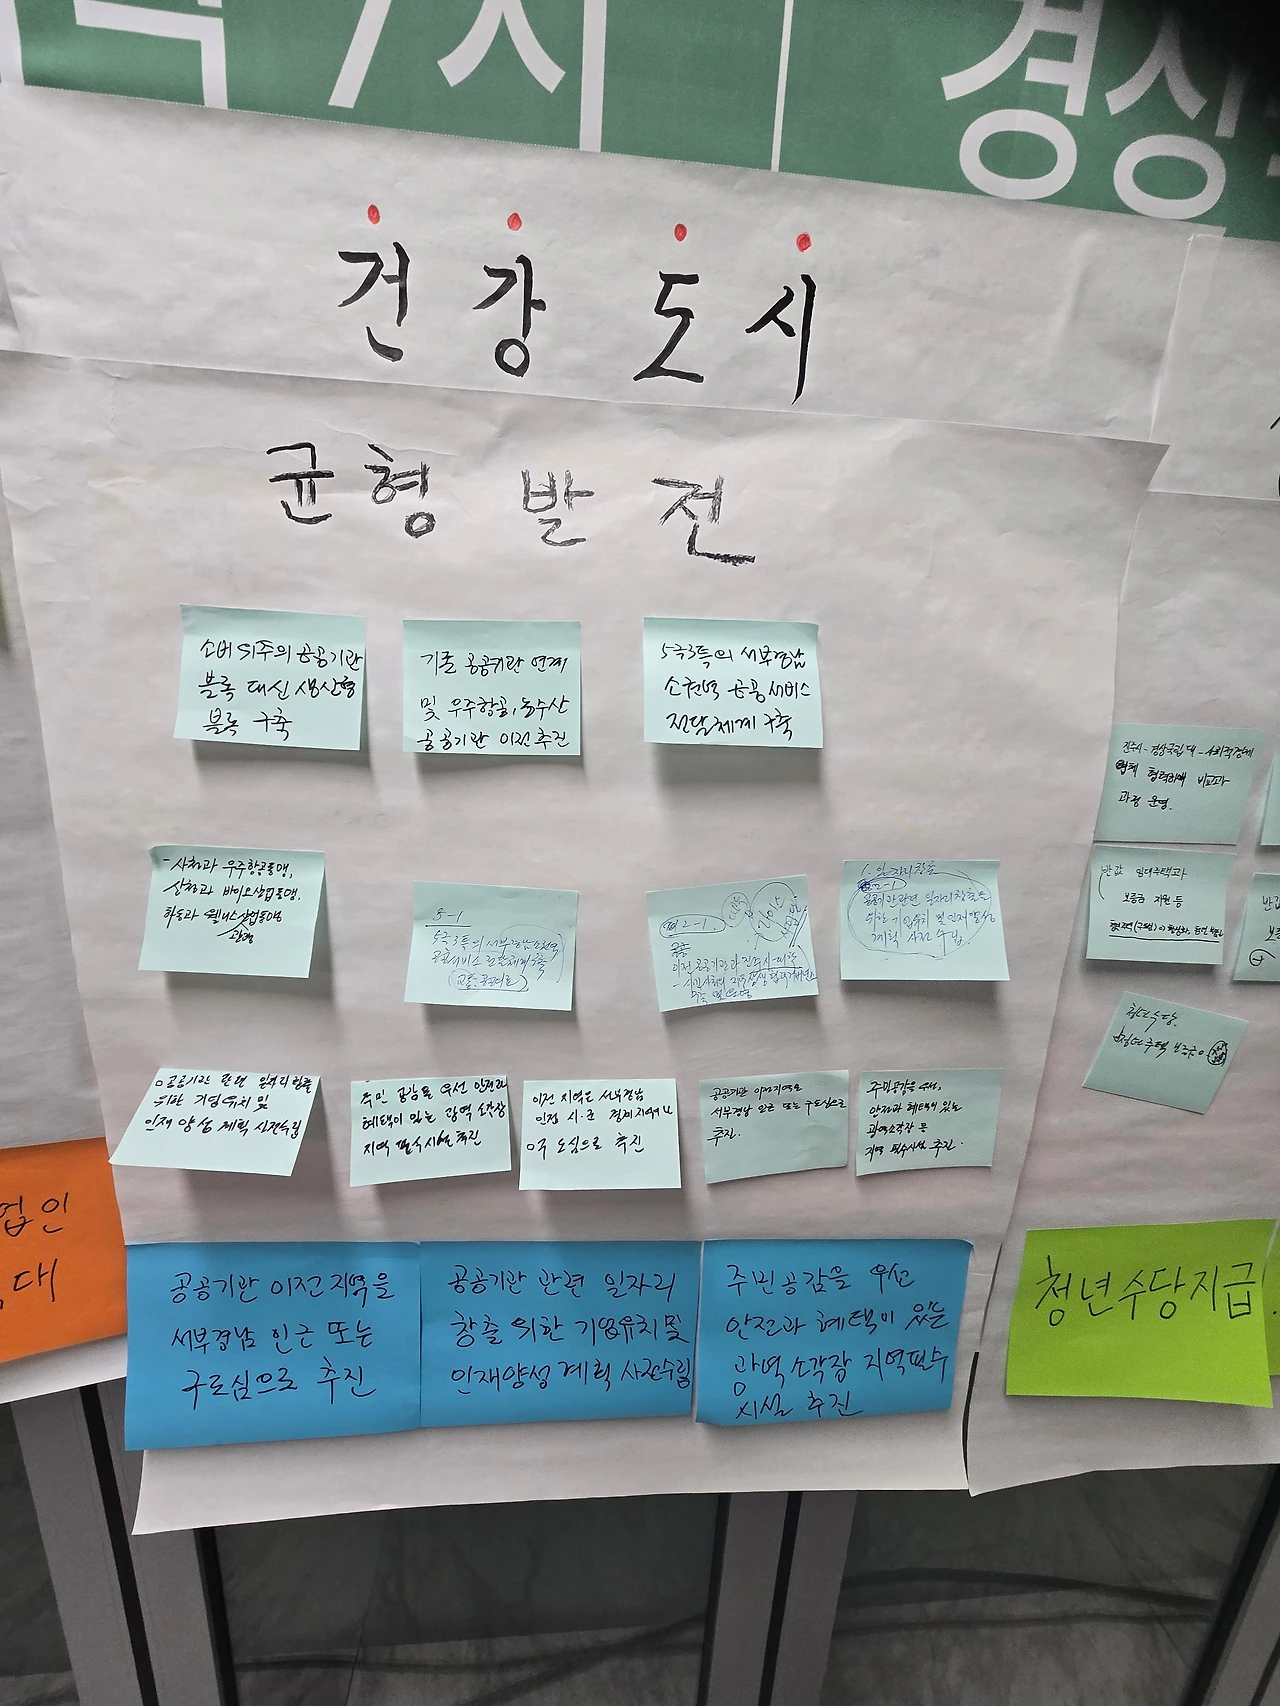 시
경상
건강도시
균형 발전
소비 위주의 공공기관
블록 대신 생산형
블록 구축
기존 공공기관 연계
및 우주항공, 농수산
공공기관 이전 추진
5극3특의 서부경남
소권역 공공서비스
전달체계 구축
- 사천과 우주항공동맹,
산청과 바이오산업동맹,
하동과 웰니스산업동맹
관광
5-1
5극3특의 서부경남 소권역
공공서비스 전달체계 구축
2-1.
공공
이전 공공기관과 진주시-대학
구축 및 운영
1. 일자리창출
2-1
공공기관 관련 일자리창출을
위한 기업유치 및 인재양성
계획 사전 수립
o 공공기관 관련 일자리 창출
위한 기업 유치 및
인재 양성 계획 사전수립
주민 공감을 우선 안전과
혜택이 있는 광역 소각장
지역 필수시설 추진
이전 지역은 서부경남
인접 시·군 경계지역이나
구 도심으로 추진
공공기관 이전지역을
서부경남 인근 또는 구도심으로
추진.
주민공감을 우선,
안전과 혜택이 있는
광역소각장 등
지역 필수시설 추진.
공공기관 이전 지역을
서부경남 인근 또는
구도심으로 추진
공공기관 관련 일자리
창출 위한 기업유치 및
인재양성 계획 사전수립
주민공감을 우선
안전과 혜택이 있는
광역소각장 지역필수
시설 추진
진주시-경상국립대-사회적경제
협력하에 비교과
과정 운영.
반값 임대주택과
보증금 지원 등
청년수당,
청년주택 보증금
청년수당지급
업인
대